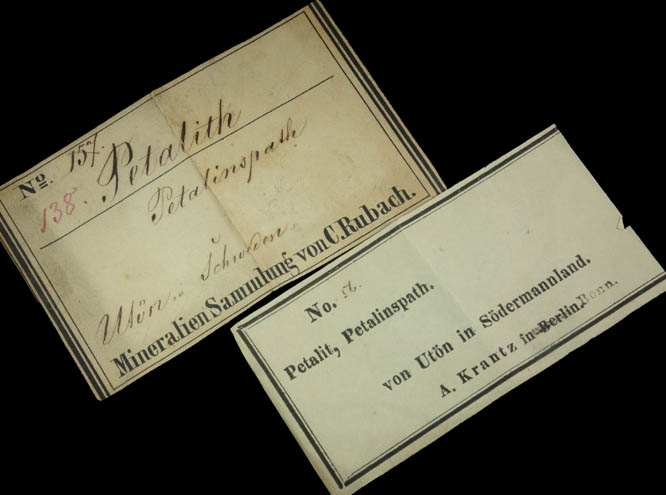 No. 157.
138. Petalith
Petalinspath
Utön in Schweden.
Mineralien Sammlung von C. Rubach.
No. 56.
Petalit, Petalinspath.
von Utön in Södermannland.
A. Krantz in Berlin. Bonn.